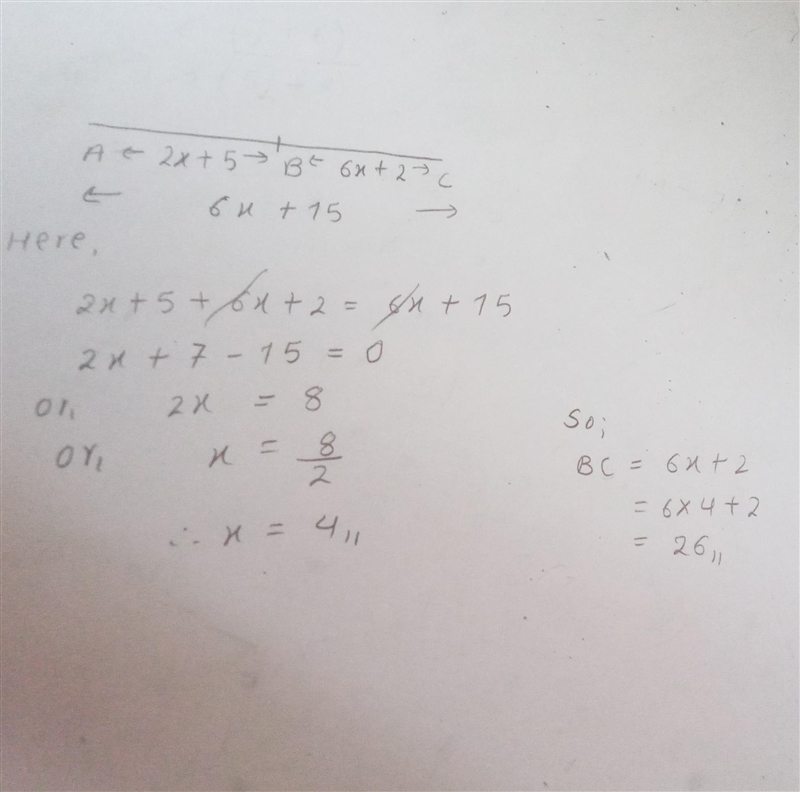 A ← 2x+5 → B ← 6x+2 → C
← 6x + 15 →
Here,
2x + 5 + 6x + 2 = 6x + 15
2x + 7 - 15 = 0
or, 2x = 8
or, x = 8/2
∴ x = 4,,
So;
BC = 6x + 2
= 6×4+2
= 26,,